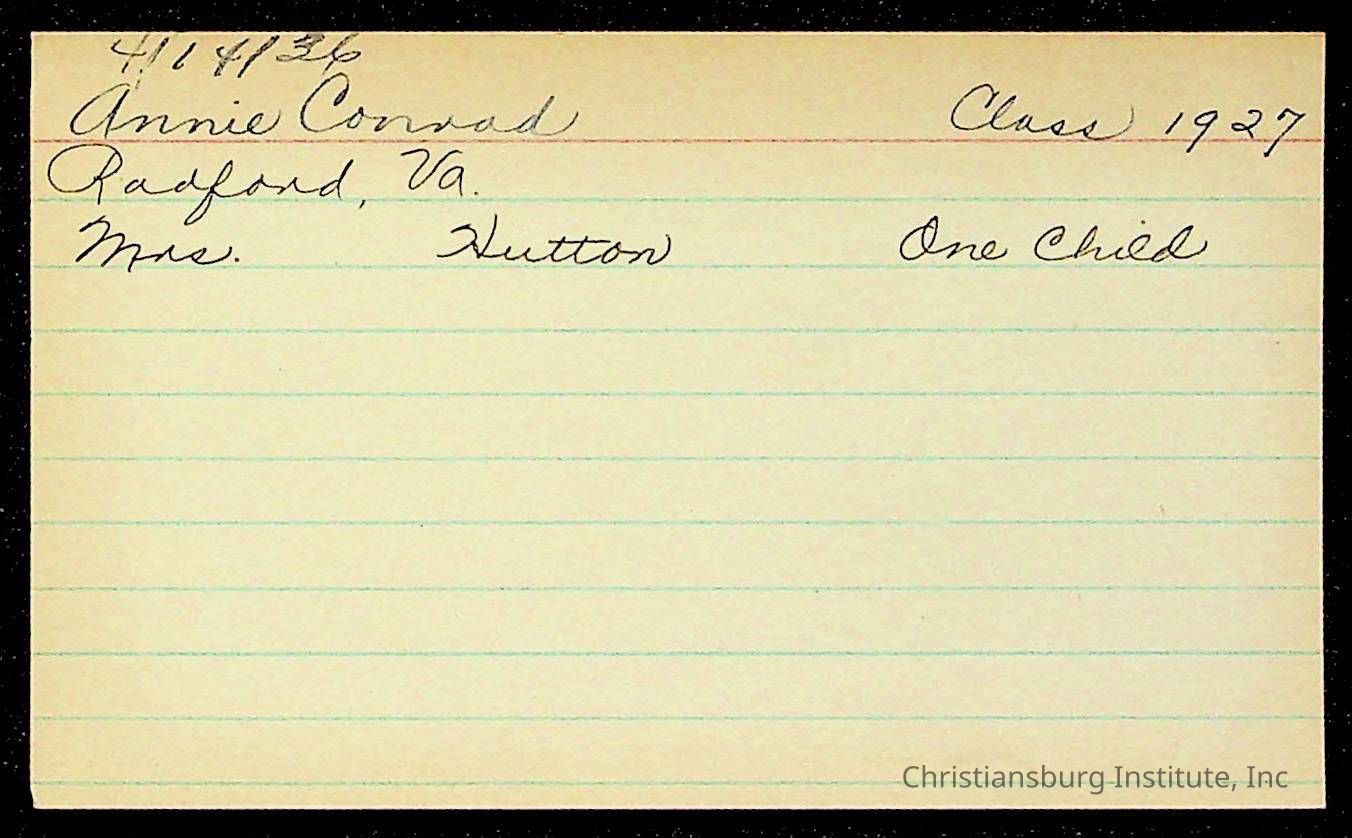 4/14/36
Annie Conrad Class 1927
Radford, Va.
Mrs. Hutton One Child
Christiansburg Institute, Inc